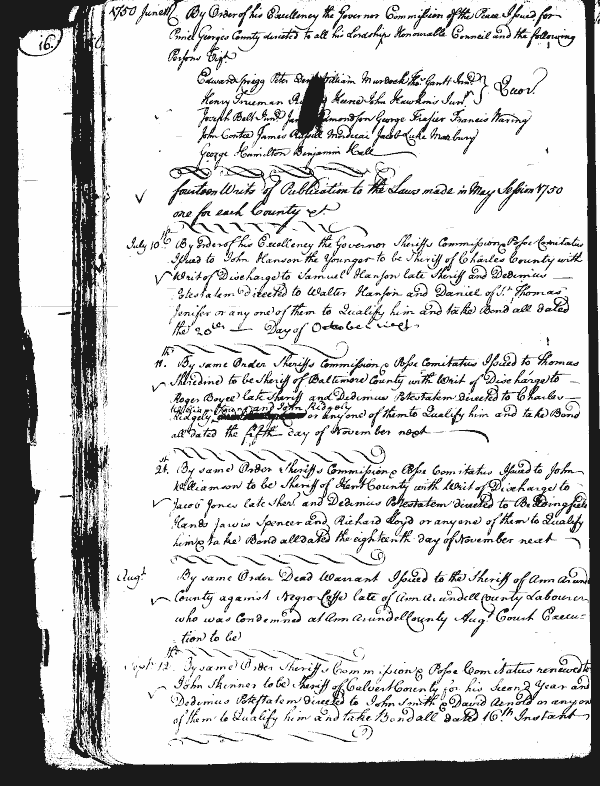 16.
1750 June By Order of his Excellency the Governor Commission of the Peace Issued for
Prince Georges County directed to all his Lordships Honourable Council and the following
Persons Vizt
Edward Sprigg Peter William Murdock Thos Gantt Junr
Henry Trueman Keene John Hawkins Junr Quor.
Joseph Belt Junr George Frasier Francis Waring
John Contee James Russell Mordecai Jacob Luke Marbury
George Hamilton Benjamin Hall
fourteen Writs of Publication to the Laws made in May Session 1750
one for each County &c.
July 10th By Order of his Excellency the Governor Sheriffs Commission & Posse Comitatus
Issued to John Hanson the Younger to be Sheriff of Charles County with
Writ of Discharge to Samuel Hanson late Sheriff and Dedimus
Potestatem directed to Walter Hanson and Daniel of St. Thomas
Jenifer or any one of them to Qualify him and take Bond all dated
the 20th Day of October next
11th. By same Order Sheriffs Commission & Posse Comitatus Issued to Thomas
Sheredine to be Sheriff of Baltimore County with Writ of Discharge to
Roger Boyce late Sheriff and Dedimus Potestatem directed to Charles
and John Ridgely
Ridgely or any one of them to Qualify him and take Bond
all dated the fifth day of November next
21st. By same Order Sheriffs Commission & Posse Comitatus Issued to John
Williamson to be Sheriff of Kent County with Writ of Discharge to
Jacob Jones late Sher and Dedimus Potestatem directed to Beddingfield
Hands Jarvis Spencer and Richard Lloyd or any one of them to Qualify
him & take Bond all dated the eighteenth day of November next
Augt By same Order Dead Warrant Issued to the Sheriff of Ann Arundel
County against Negro Coffe late of Ann Arundell County Labourer
who was Condemned at Ann Arundell County Augt Court Execu-
tion to be
Sept 12th. By same Order Sheriffs Commission & Posse Comitatus renewed to
John Skinner to be Sheriff of Calvert County for his Second Year and
Dedimus Potestatem directed to John Smith & David Arnold or any one
of them to Qualify him and take Bond all dated 16th Instant